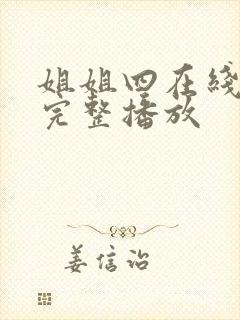 姐姐四在线
完整播放
姜信诒